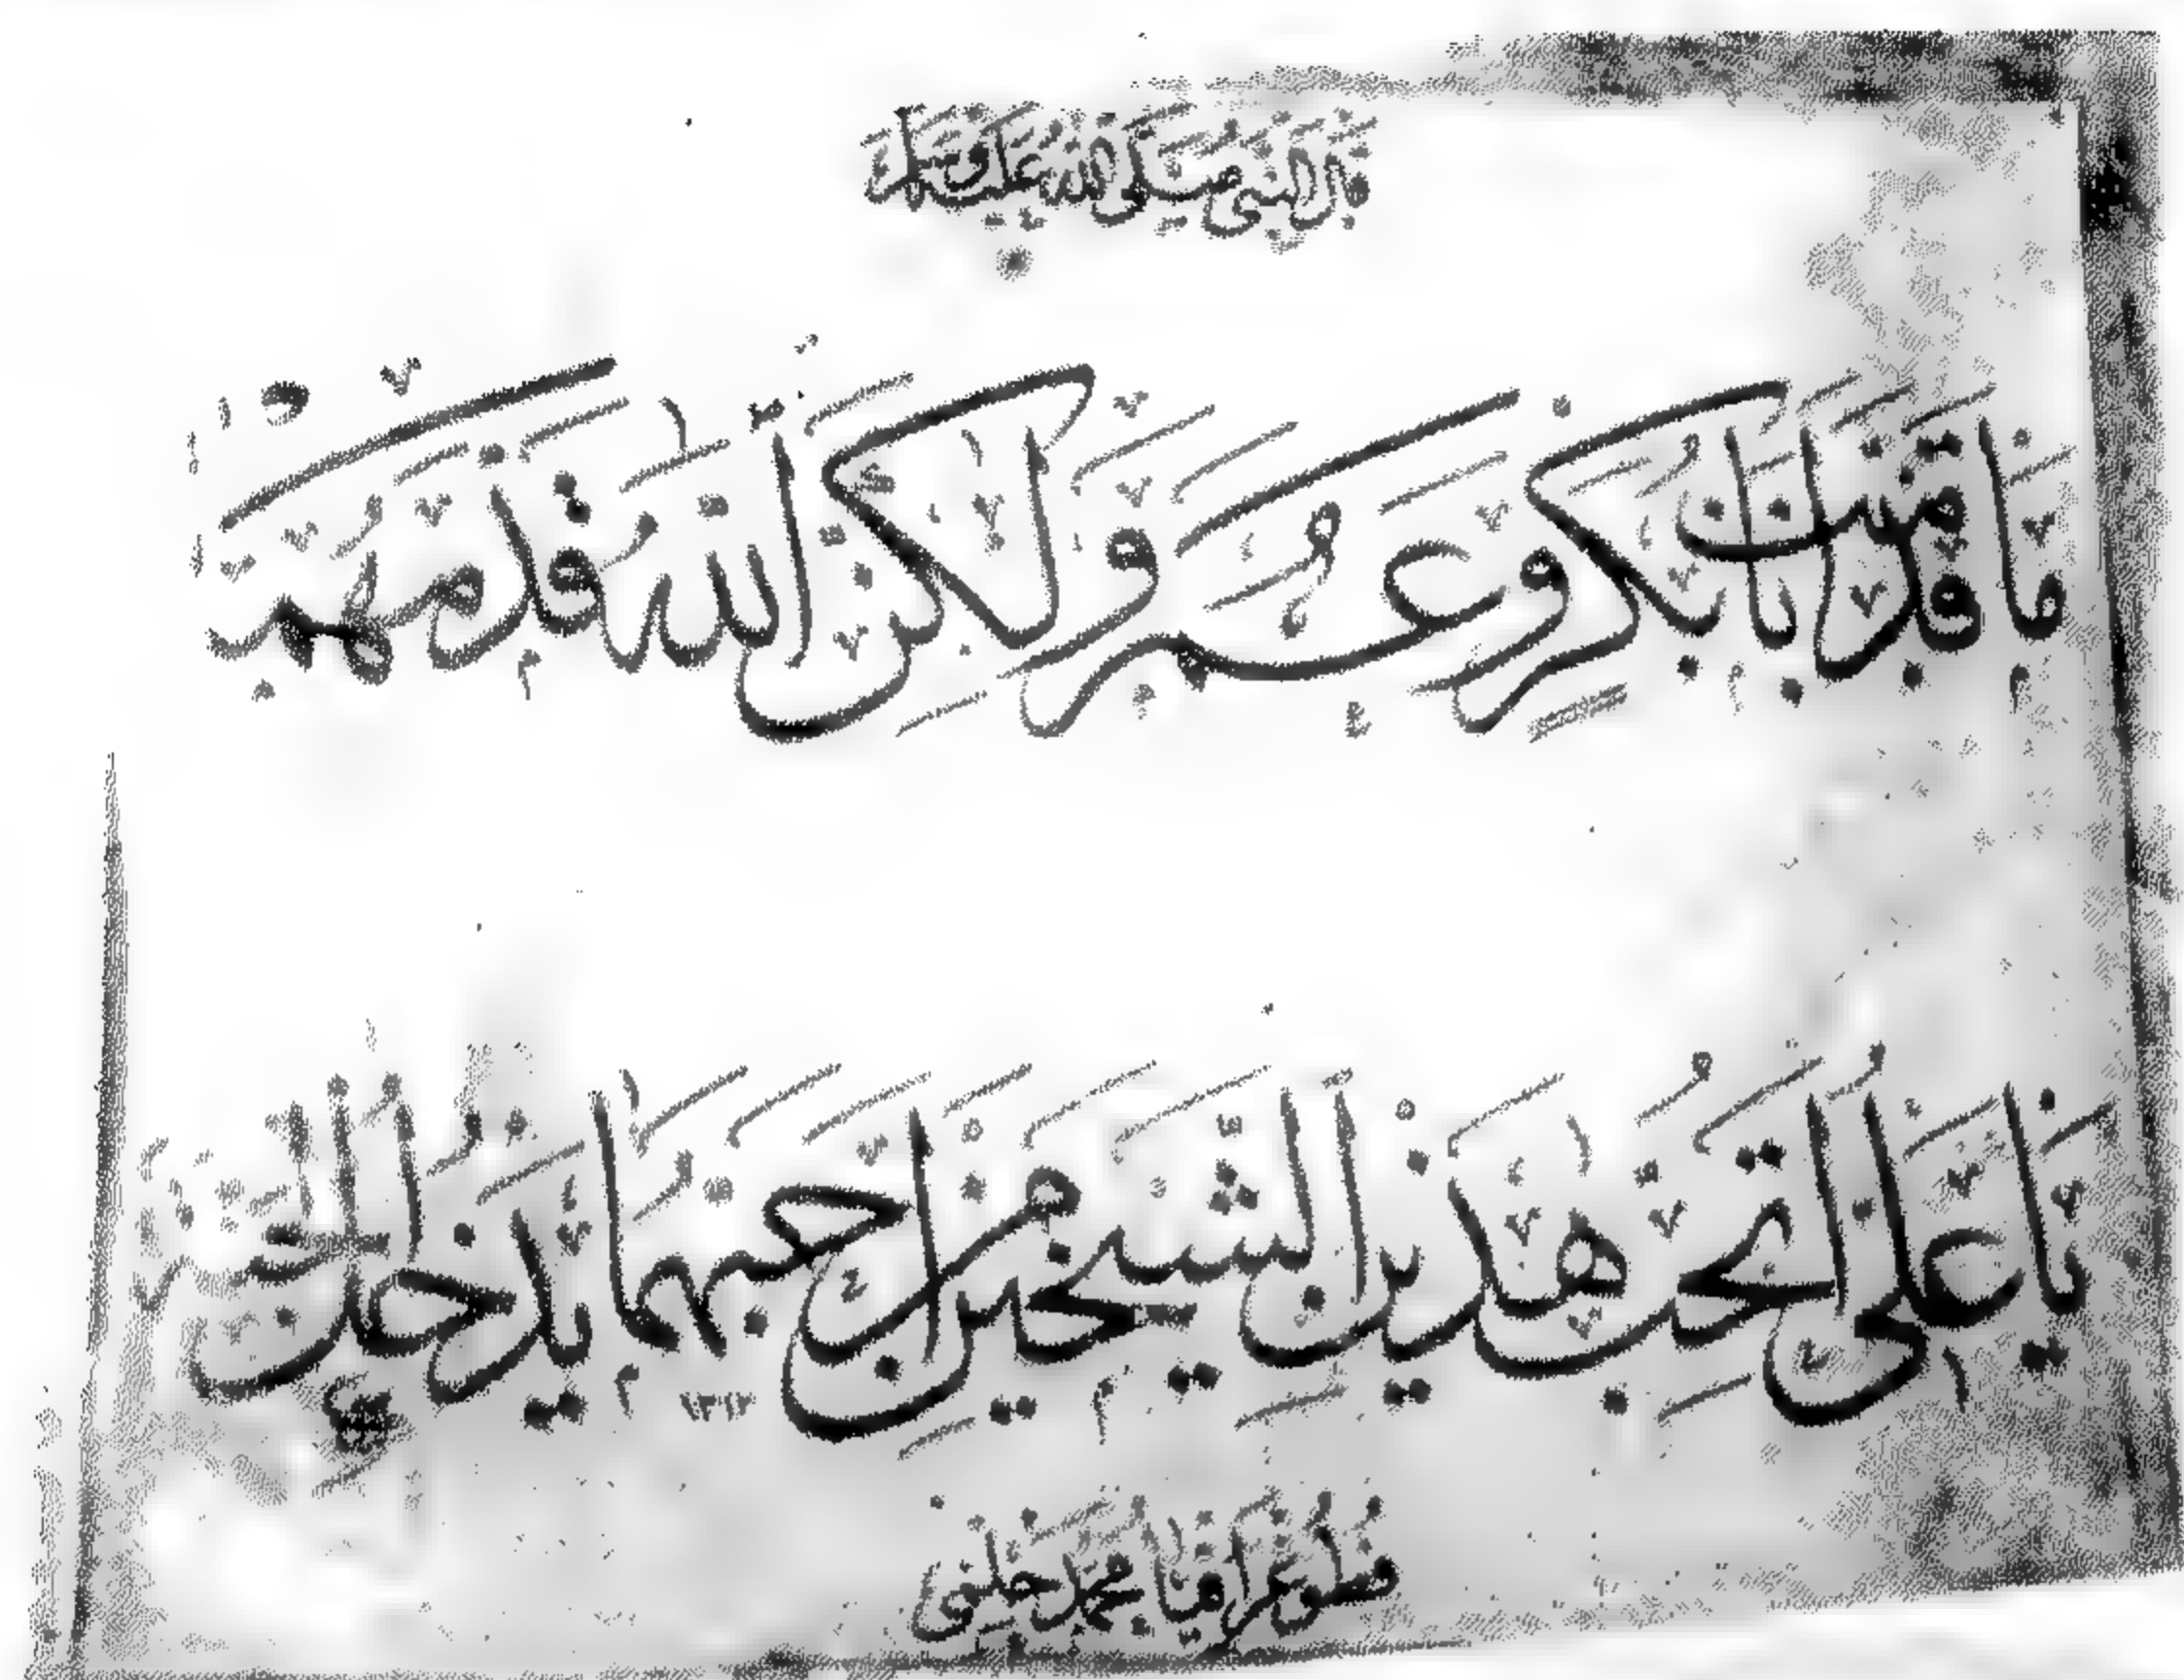 قال النبي صلى الله عليه وسلم
ما قدمت أبا بكر وعمر ولكن الله قدمهما
يا علي أتحب هذين الشيخين من أحبهما يدخل الجنة
١٣١٢
محمد خلوصي